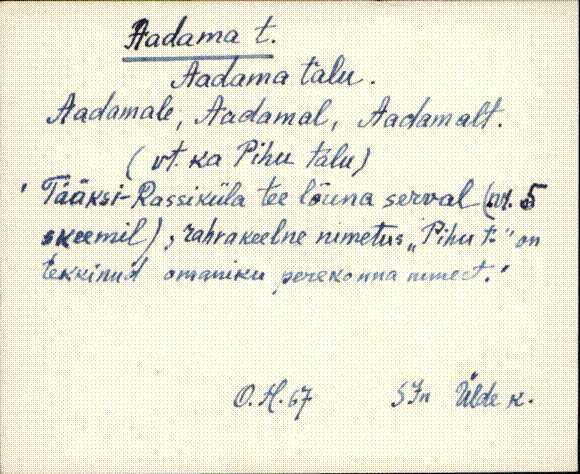 Aadama t.
Aadama talu.
Aadamale, Aadamal, Aadamalt.
(vt. ka Pihu talu)
"Tääksi-Rassiküla tee lõuna serval (nr. 5
skeemil), rahvakeelne nimetus „Pihu t." on
tekkinud omaniku perekonna nimest."
O.H. 67 Ülde k.